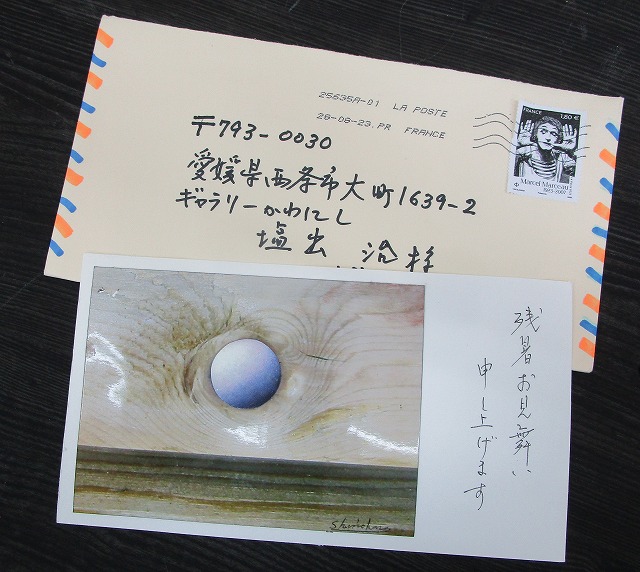 25635A-01 LA POSTE
28-08-23.PR FRANCE
FRANCE 1,80 €
Marcel Marceau
1923-2007
〒793-0030
愛媛県西条市大町1639-2
ギャラリーかわにし
塩出 治様
残暑お見舞い
申し上げます